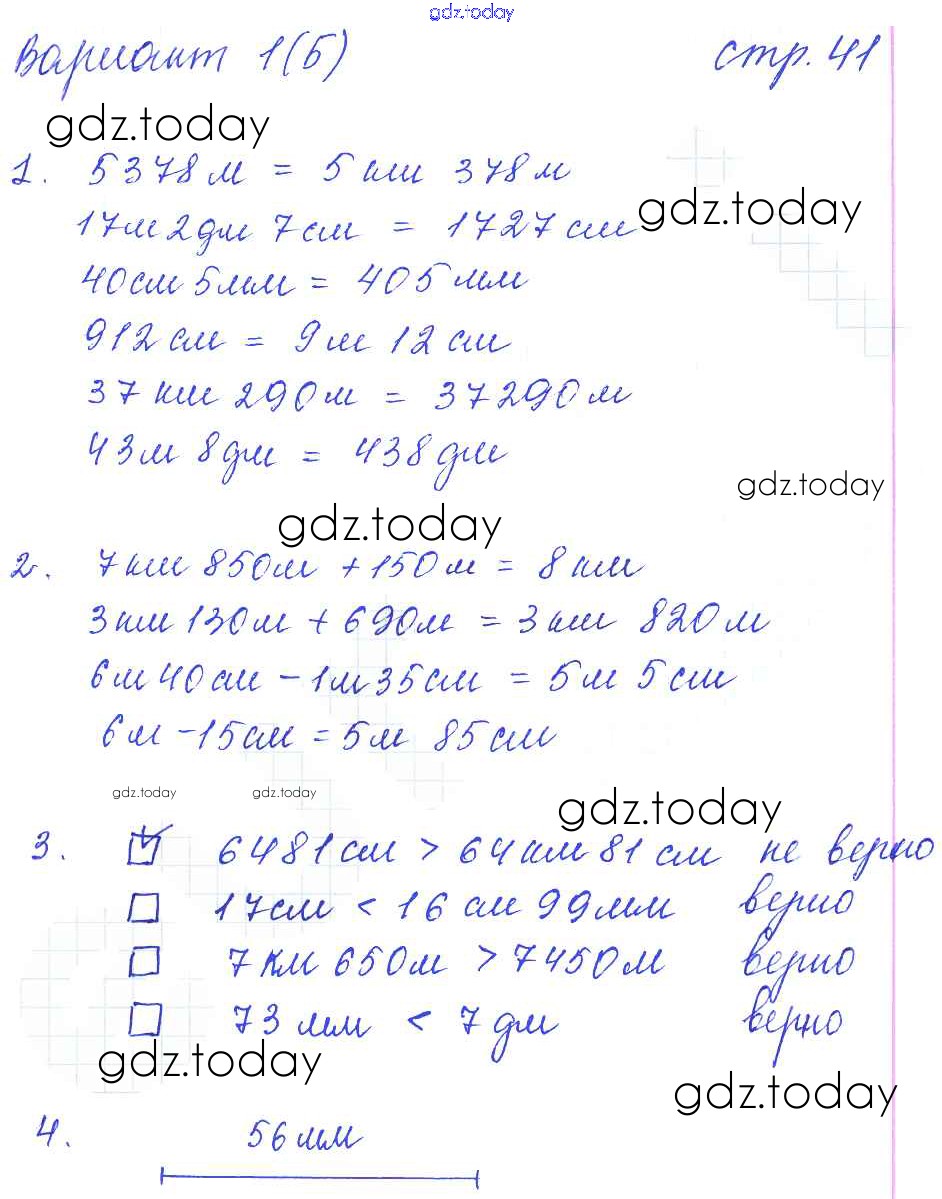 gdz.today
Вариант 1(Б) стр. 41
gdz.today
1. 5378 м = 5 км 378 м
gdz.today
17м 2дм 7см = 1727 см
40см 5мм = 405 мм
912 см = 9м 12 см
37 км 290м = 37290м
43м 8дм = 438 дм
gdz.today
gdz.today
2. 7км 850м + 150м = 8 км
3км 130м + 690м = 3км 820м
6м 40см - 1м 35см = 5м 5см
6м - 15см = 5м 85см
gdz.today gdz.today
gdz.today
3. 6481см > 64км 81 см не верно
17см < 16 см 99мм верно
7км 650м > 7450м верно
73 мм < 7 дм верно
gdz.today
gdz.today
4. 56 мм